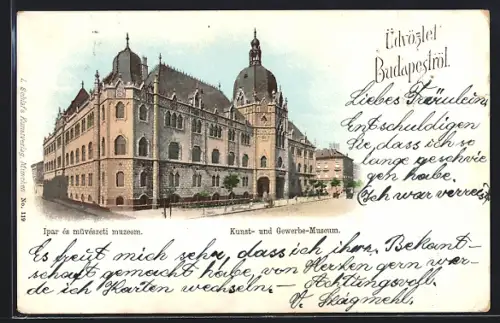 Üdvözlet
Budapestről.
Liebes Fräulein,
Entschuldigen
Sie, dass ich so
lange geschwie
gen habe.
(Ich war verreist)
Ipar és művészeti muzeum.
Kunst- und Gewerbe-Museum.
Es freut mich sehr, dass ich ihre Bekant-
schaft gemacht habe, von Herzen gern wer-
de ich Karten wechseln. -
Achtungsvoll.
V. Skagmehl.
Kunstverlag, München No. 119